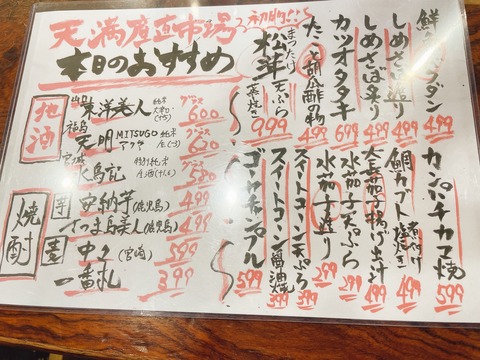 天満産直市場
本日のおすすめ
初物!!
鮮
499
しめさば造り
499
しめさば炙り
499
カツオタタキ
699
たこと胡瓜酢の物
499
まつたけ
松茸 天ぷら
炭焼き
999
カンパチカマ焼
599
鯛カブト 塩焼き
499
大長茄子揚げ出汁
499
水茄子天ぷら
299
水茄子造り
299
スイートコーン醤油焼
399
スイートコーン天ぷら
399
ゴーヤチャンプル
599
地酒
山形 東洋美人 純米
グラス 600
福島 天明 MITSUGO 純米
アカ
グラス 620
宮城 水鳥記 特別純米
グラス 580
焼酎
芋
安納芋(鹿児島)
499
さつま島美人(鹿児島)
499
麦
中々(宮崎)
599
一番札
399